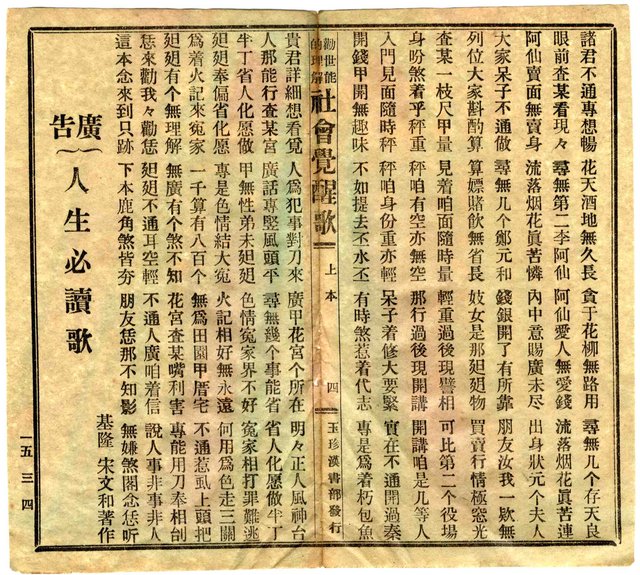 諸君不通專想暢 花天酒地無久長 貪于花柳無路用 尋無几个存天良
眼前查某看現々 尋無第二李阿仙 阿仙愛人無愛錢 流落烟花眞苦連
阿仙賣面無賣身 流落烟花眞苦憐 內中意賜廣未尽 出身狀元个夫人
大家呆子不通做 尋無几个鄭元和 錢銀開了有所靠 朋友汝我一欵無
列位大家斟酌算 算嫖賭飲無省長 妓女是那廻廻物 買賣行情極窓光
查某一枝尺甲量 見着咱面隨時量 輕重過後現譬相 可比第二个役場
身吩煞着乎秤重 秤咱有空亦無空 那行過後現開講 開講咱是几等人
入門見面隨時秤 秤咱身份重亦輕 呆子着修大要緊 實在不通開過秦
開錢甲開無趣味 不如提去丕水丕 有時煞惹着代志 專是爲着朽包魚
勸世能的理解 社會覺醒歌 上本 四 玉珍漢書部發行
貴君詳細想看覓 人爲犯事對刀來 廣甲花宮个所在 明々正人風神台
人那能行查某宮 廣話專竪風頭平 尋無幾个事能省 省人化愿做牛丁
牛丁省人化愿做 甲無性弟未廻廻 色情冤家界不好 冤家相打罪難逃
廻廻奉偏省化愿 專是色情結大冤 火記相好無永遠 何用爲色走三關
爲着火記來冤家 一千算有八百个 無爲田園甲厝宅 不通惹虱上頭把
廻廻有个無理解 無廣有个煞不知 花宮查某嘴利害 專能用刀奉相刣
恁來勸我々勸恁 廻廻不通耳空輕 不通人廣咱着信 說人事非事非人
這本念來到只跡 下本鹿角煞皆夯 朋友恁那不知影 無嫌煞閣念恁听
廣告
人生必讀歌
基隆 宋文和著作
一五三四